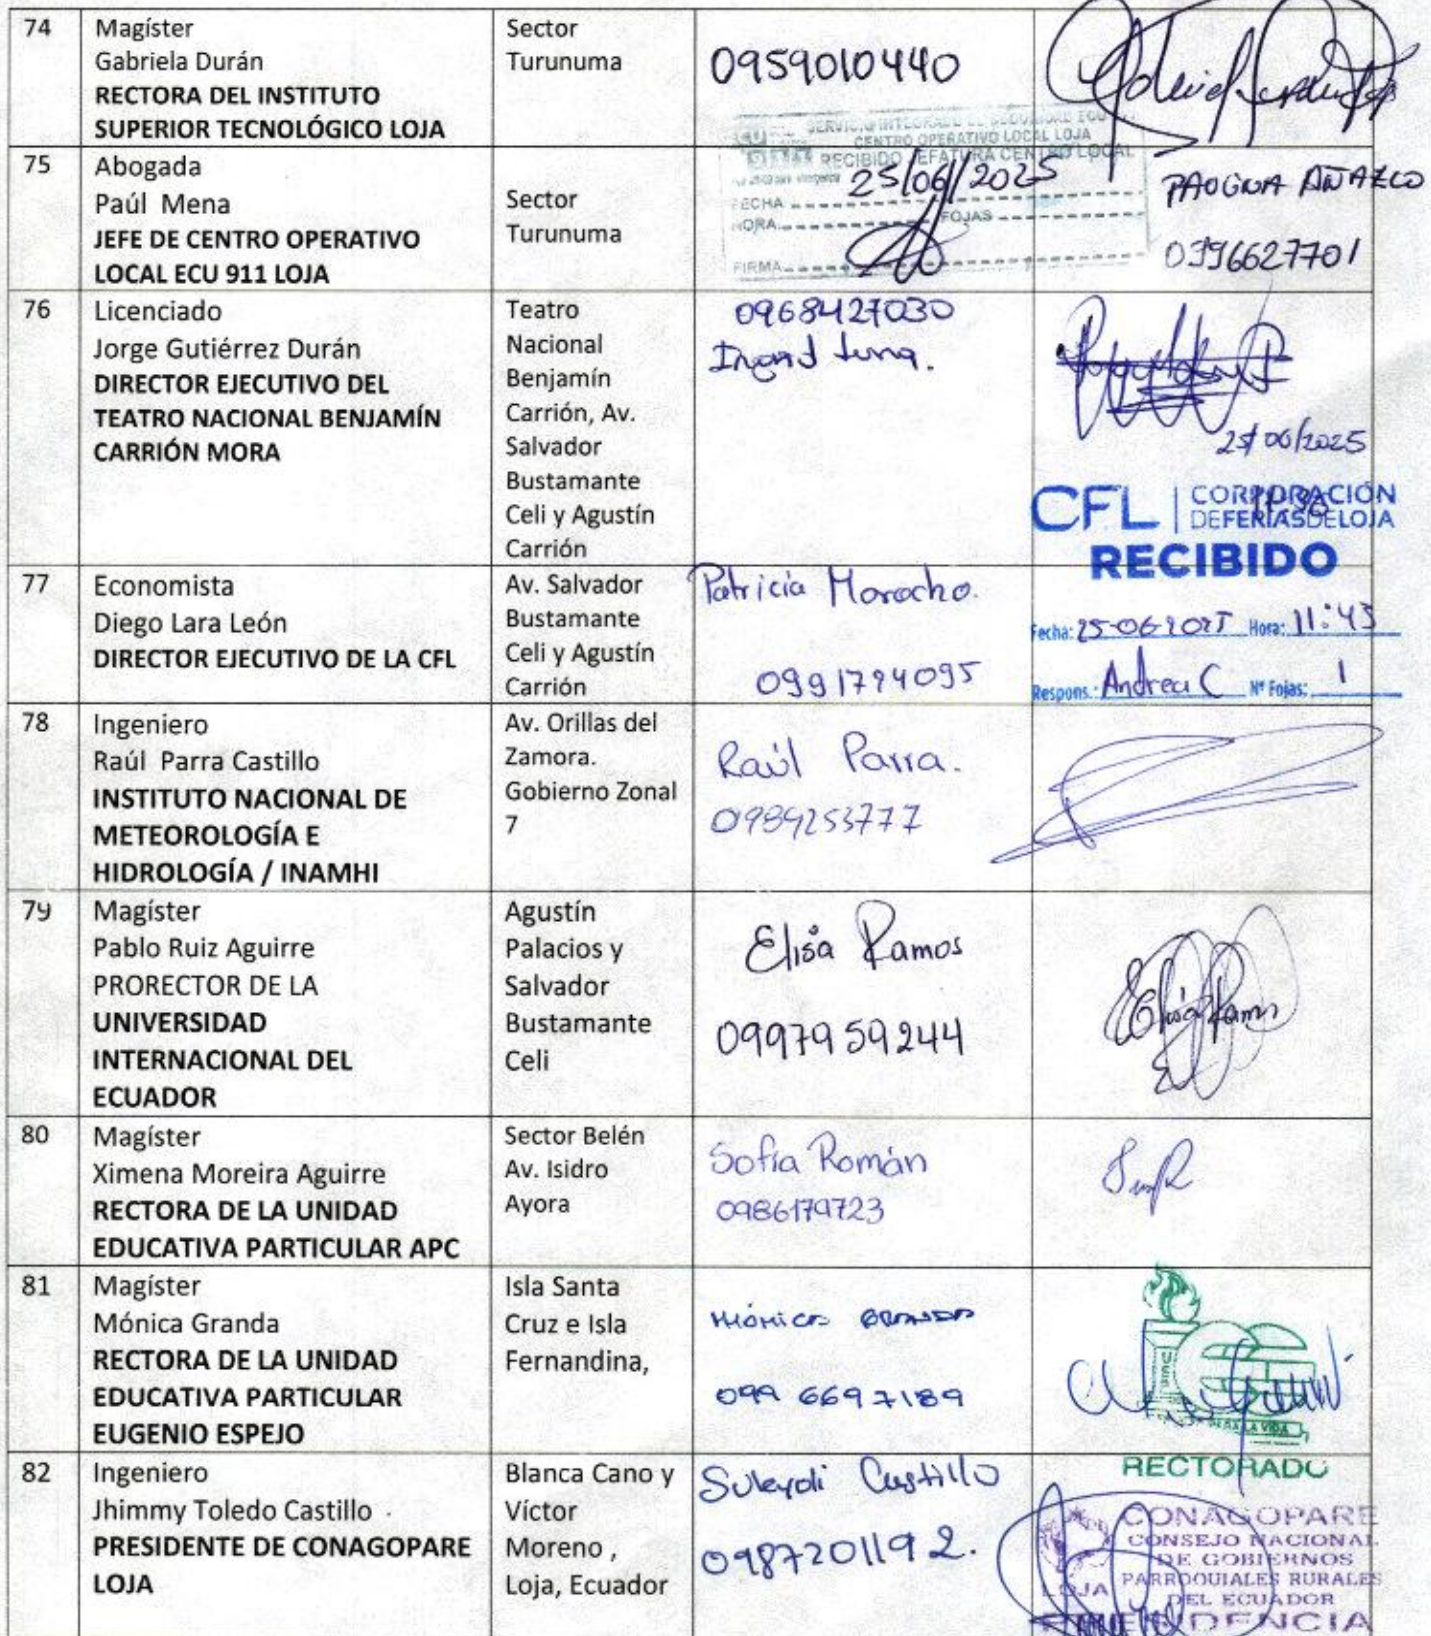 74
Magíster
Gabriela Durán
RECTORA DEL INSTITUTO
SUPERIOR TECNOLÓGICO LOJA
Sector
Turunuma
0959010440
75
Abogada
Paúl Mena
JEFE DE CENTRO OPERATIVO
LOCAL ECU 911 LOJA
Sector
Turunuma
SERVICIO INTEGRADO DE SEGURIDAD ECU
CENTRO OPERATIVO LOCAL LOJA
RECIBIDO JEFATURA CENTRO LOCAL
25/06/2025
FECHA
HORA FOJAS
FIRMA
AÑAZCO
0996627701
76
Licenciado
Jorge Gutiérrez Durán
DIRECTOR EJECUTIVO DEL
TEATRO NACIONAL BENJAMÍN
CARRIÓN MORA
Teatro
Nacional
Benjamín
Carrión, Av.
Salvador
Bustamante
Celi y Agustín
Carrión
0968427030
Ingrid Luna.
25/06/2025
CFL CORPORACIÓN
DEFERIASDELOJA
RECIBIDO
77
Economista
Diego Lara León
DIRECTOR EJECUTIVO DE LA CFL
Av. Salvador
Bustamante
Celi y Agustín
Carrión
Patricia Morocho.
0991794095
Fecha: 25-06-2025 Hora: 11:43
Respons.: Andrea C Nº Fojas: 1
78
Ingeniero
Raúl Parra Castillo
INSTITUTO NACIONAL DE
METEOROLOGÍA E
HIDROLOGÍA / INAMHI
Av. Orillas del
Zamora.
Gobierno Zonal
7
Raúl Parra.
0989253777
79
Magíster
Pablo Ruiz Aguirre
PRORECTOR DE LA
UNIVERSIDAD
INTERNACIONAL DEL
ECUADOR
Agustín
Palacios y
Salvador
Bustamante
Celi
Elisa Ramos
0997959244
Elisa Ramos
80
Magíster
Ximena Moreira Aguirre
RECTORA DE LA UNIDAD
EDUCATIVA PARTICULAR APC
Sector Belén
Av. Isidro
Ayora
Sofía Román
0986179723
81
Magíster
Mónica Granda
RECTORA DE LA UNIDAD
EDUCATIVA PARTICULAR
EUGENIO ESPEJO
Isla Santa
Cruz e Isla
Fernandina,
Mónica Granda
099 6697189
LA VIDA
RECTORADO
82
Ingeniero
Jhimmy Toledo Castillo
PRESIDENTE DE CONAGOPARE
LOJA
Blanca Cano y
Víctor
Moreno ,
Loja, Ecuador
Suleydi Castillo
0987201192.
CONAGOPARE
CONSEJO NACIONAL
DE GOBIERNOS
PARROQUIALES RURALES
DEL ECUADOR
LOJA
PRESIDENCIA